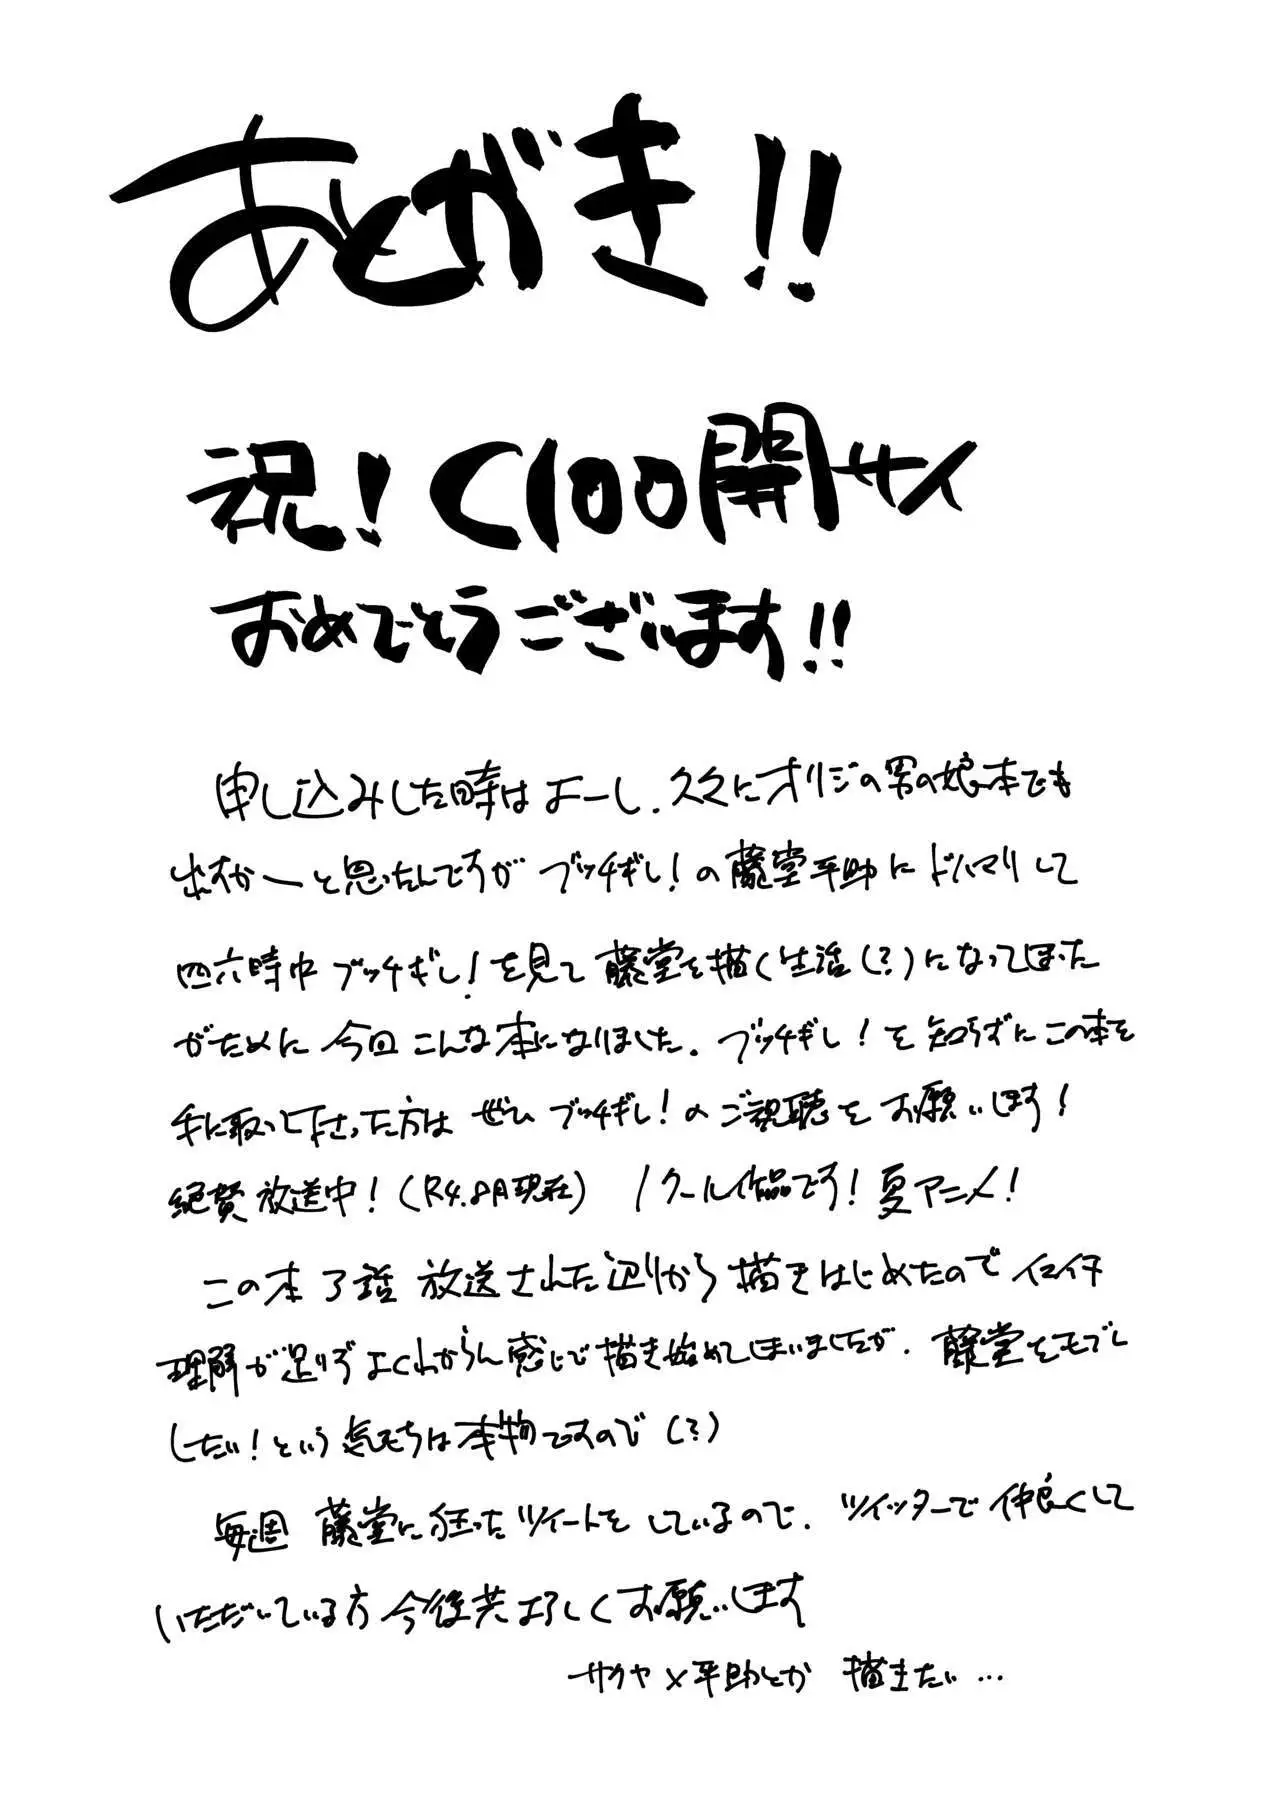 あとがき!!
祝!C100開サイ
おめでとうございます!!
申し込みした時はよーし、久々にオリジの男の娘本でも
出すかーと思ったんですが ブッチギレ!の藤堂平助にドハマりして
四六時中ブッチギレ!を見て藤堂を描く生活(?)になってしまった
がために今回こんな本になりました。ブッチギレ!を知らずにこの本を
手に取って下さった方は ぜひ ブッチギレ!のご視聴をお願いします!
絶賛放送中!(R4.8月現在) 1クール作品です!夏アニメ!
この本 3話 放送された辺りから描きはじめたので イマイチ
理解が足りずよくわからん感じで描き始めてしまいましたが、藤堂をモブレ
したい!という気もちは本物ですので(?)
毎週 藤堂に狂ったツイートをしているので、ツイッターで仲良くして
いただいている方今後共よろしくお願いします
サクヤ×平助とか 描きたい…